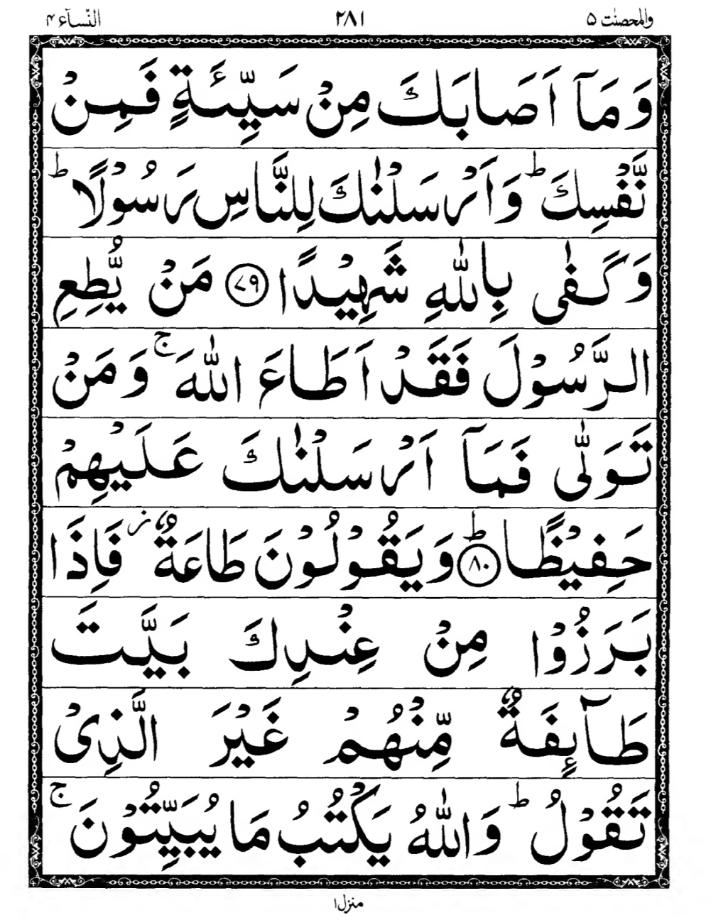 والمحصنت ۵ ۲۸۱ النّسآء ۴
وَمَاۤ اَصَابَكَ مِنْ سَیِّئَةٍ فَمِنْ
نَّفْسِكَ ؕ وَاَرْسَلْنٰكَ لِلنَّاسِ رَسُوْلًا ؕ
وَكَفٰی بِاللّٰهِ شَهِیْدًا ﴿۷۹﴾ مَنْ یُّطِعِ
الرَّسُوْلَ فَقَدْ اَطَاعَ اللّٰهَ ۚ وَمَنْ
تَوَلّٰی فَمَاۤ اَرْسَلْنٰكَ عَلَیْهِمْ
حَفِیْظًا ﴿ؕ۸۰﴾ وَیَقُوْلُوْنَ طَاعَةٌ ؗ فَاِذَا
بَرَزُوْا مِنْ عِنْدِكَ بَیَّتَ
طَآىِٕفَةٌ مِّنْهُمْ غَیْرَ الَّذِیْ
تَقُوْلُ ؕ وَاللّٰهُ یَكْتُبُ مَا یُبَیِّتُوْنَ ۚ
منزل۱